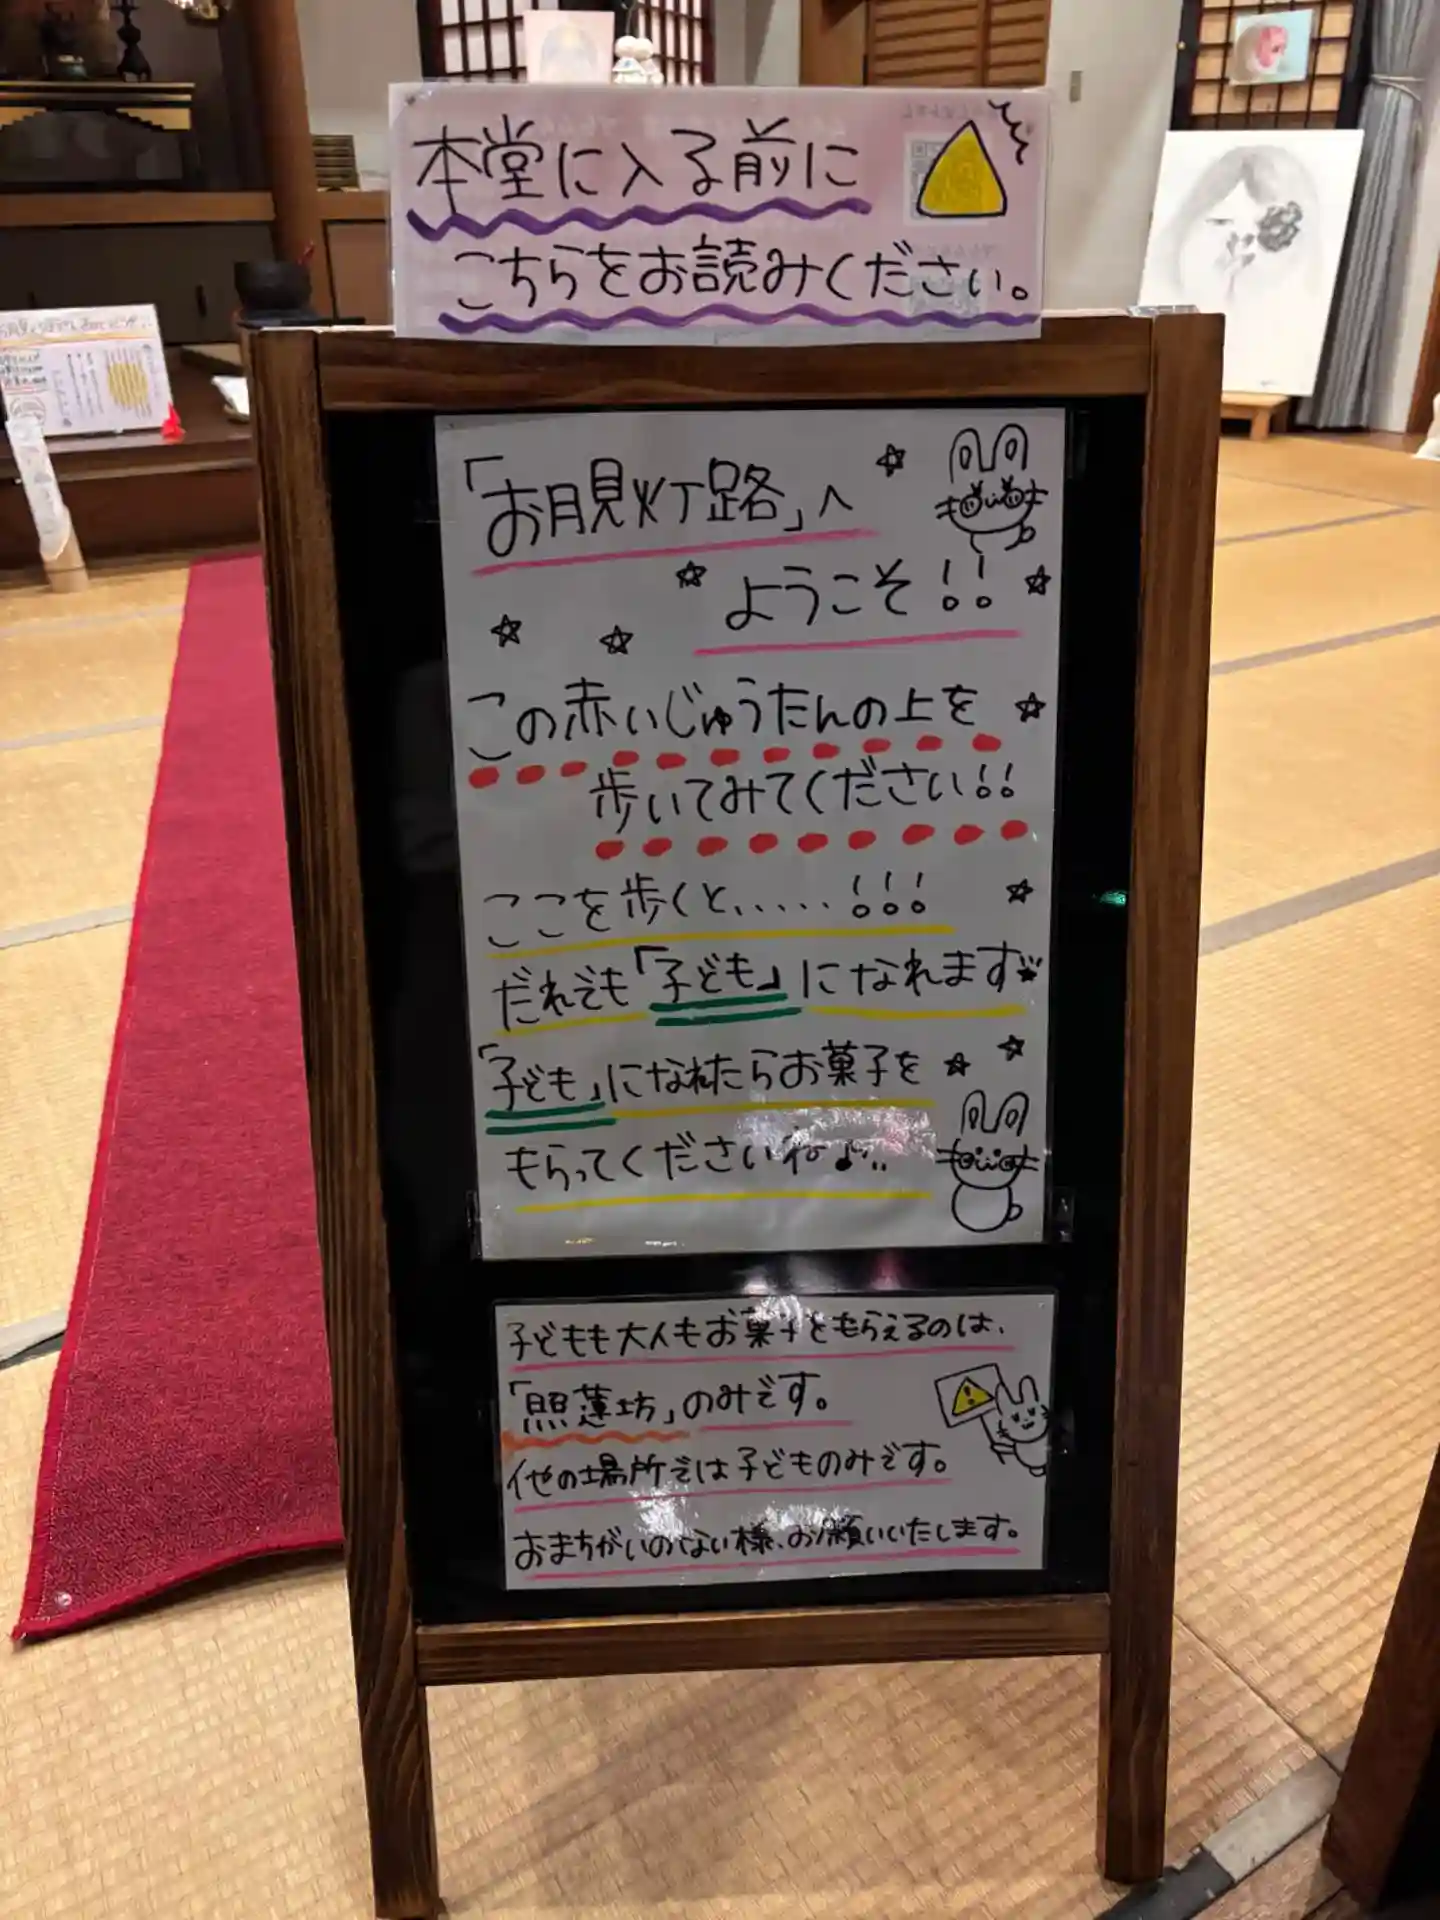 本堂に入る前に
こちらをお読みください。
「お月見灯路」へ
ようこそ!!
この赤いじゅうたんの上を
歩いてみてください!!
ここを歩くと、....!!!
だれでも「子ども」になれます
「子ども」になれたらお菓子を
もらってくださいね♪..
子どもも大人もお菓子をもらえるのは、
「照蓮坊」のみです。
他の場所では子どものみです。
おまちがいのない様、お願いいたします。